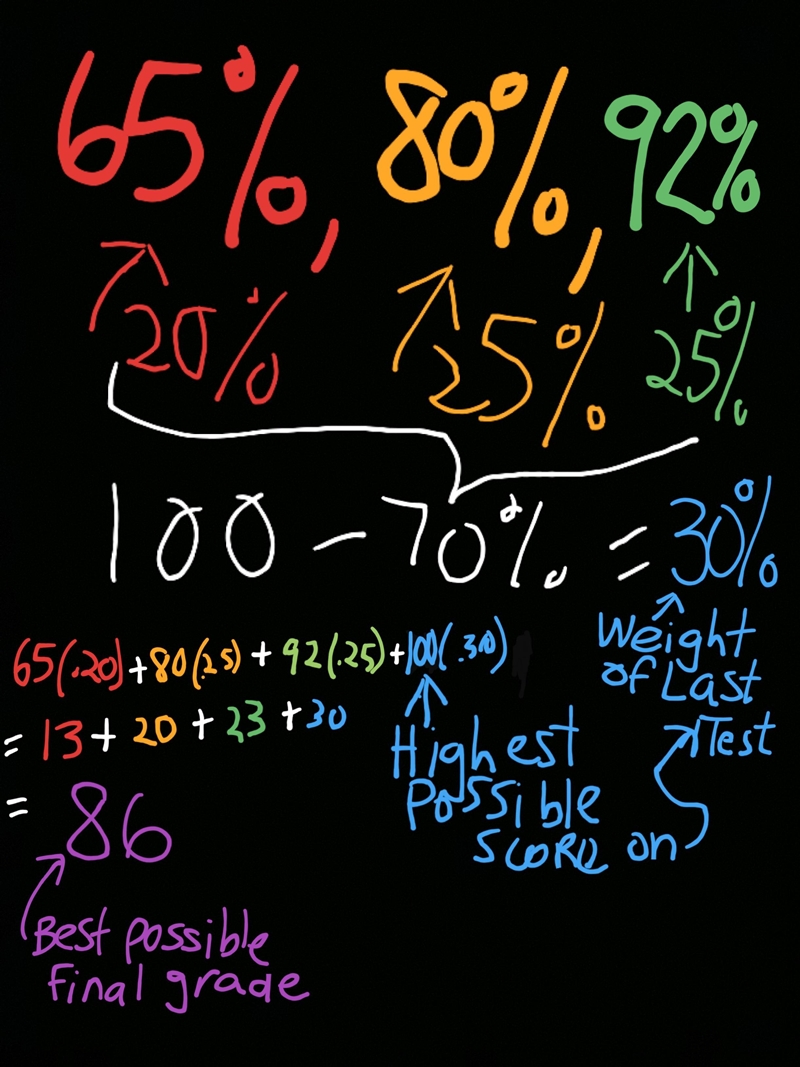 65%, 80%, 92%
20% 25% 25%
100 - 70% = 30%
Weight
of Last
Test
65(.20) + 80(.25) + 92(.25) + 100(.30)
= 13 + 20 + 23 + 30
Highest
Possible
score on
= 86
Best possible
final grade